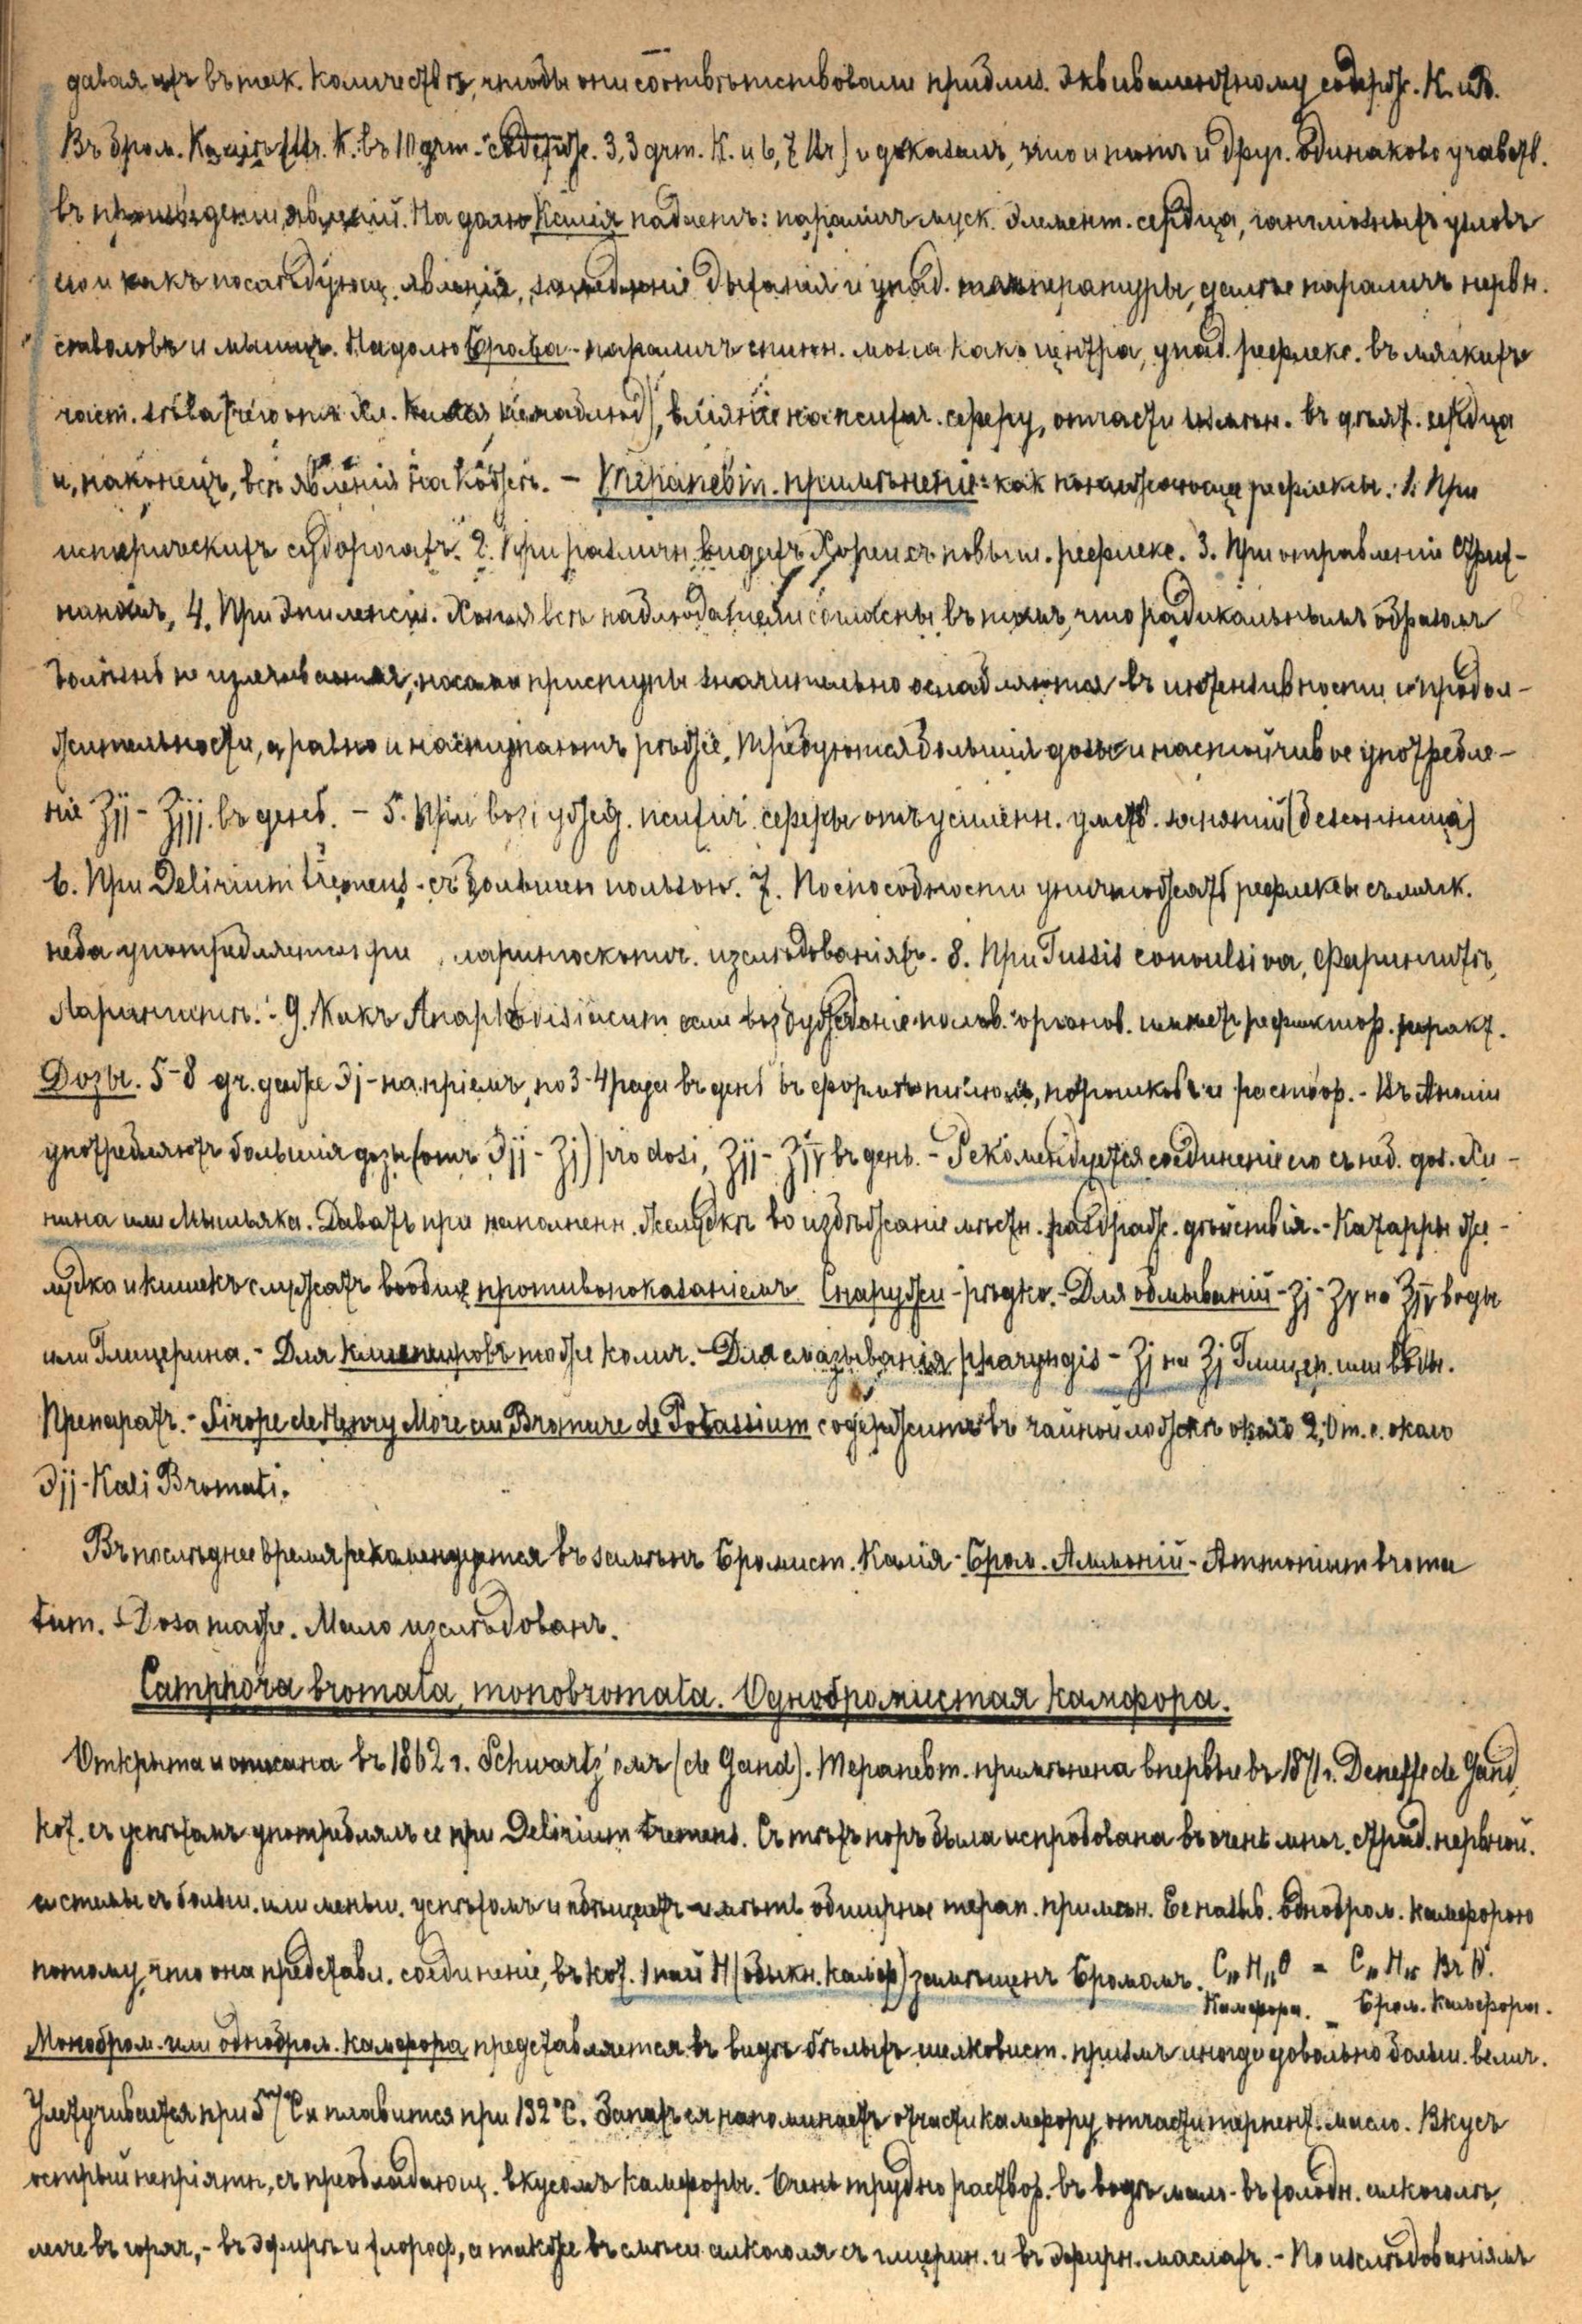 давая ихъ въ так. количествѣ, чтобы они соотвѣтствовали приблиз. эквивалентному содерж. К. и В.
Въ бром. Каліѣ (Br. K. въ 10 grm. содерж. 3,3 grm. K. и 6,7 Br) и доказалъ, что и тотъ и друг. одинаково участв.
въ произведеніи явленій. На долю Калія падаетъ: параличъ муск. элемент. сердца, ганглiозныхъ узловъ
его и какъ послѣдующ. явленія, замедленіе дыханія и упад. температуры, далѣе параличъ нервн.
стволовъ и мышцъ. На долю Брома - параличъ спинн. мозга какъ центра, упад. рефлекс. въ мягкихъ
част. зѣва (чего отъ Хл. Калія не наблюд), вліяніе на психич. сферу, отчасти измѣн. въ дѣят. сердца
и, наконецъ, всѣ явленія на кожѣ. - Терапевт. примѣненіе: как понижающее рефлексы: 1. При
истерическихъ судорогахъ. 2. При различн. видахъ Хореи съ повыш. рефлекс. 3. При отравленіи Стрих-
ниномъ, 4. При эпилепсіи. Хотя всѣ наблюдатели согласны въ томъ, что радикальнымъ образомъ
болѣзнь не излечивается, но самые приступы значительно ослабляются въ интензивности и продол-
жительности, а равно и наступаютъ рѣдже. Требуются большія дозы и настойчивое употребле-
ніе ʒjj - ʒjjj. въ день. - 5. При возбужд. психич. сферы отъ усиленн. умств. занятій (безсонница)
6. При Delirium tremens - съ большею пользою. 7. По способности уничтожать рефлексы съ мягк.
неба употребляется при ларингоскопич. изслѣдованіяхъ. 8. При Tussis convulsiva, Фарингитѣ,
Ларингитѣ. - 9. Какъ Anaphrodisiacum если возбужденіе полов. органов. имѣетъ рефлектор. характ.
Дозы. 5-8 gr. даже ℈j - на пріемъ, по 3-4 раза въ день въ формѣ пилюль, порошковъ и раствор. - Въ Англіи
употребляютъ большія дозы (отъ ℈jj - ʒj) pro dosi, ʒjj - ʒjv въ день. - Рекомендуется соединеніе его съ неб. доз. Хи-
нина или Мышьяка. Давать при наполненн. желудкѣ во избѣжаніе мѣстн. раздраж. дѣйствія. - Катарры же-
лудка и кишекъ служатъ вообще противопоказаніемъ Снаружи - рѣдко. - Для обмываній - ʒj - ʒv на ℥jv воды
или Глицерина. - Для клистировъ тоже колич. - Для смазыванія pharyngis - ʒj на ℥j Глицер. или воды.
Препаратъ. - Sirope de Henry More au Bromure de Potassium содержитъ въ чайной ложкѣ около 2,0 т. е. около
℈jj - Kali Bromati.
Въ послѣднее время рекомендуется въ замѣнъ Бромист. Калія - Бром. Аммоній - Ammonium broma
tum. - Doza таже. Мало изслѣдованъ.
Camphora bromata, monobromata. Однобромистая камфора.
Открыта и описана въ 1862 г. Schwartz'омъ (de Gand). Терапевт. примѣнена впервые въ 1871 г. Deneffe de Gand,
кот. съ успѣхомъ употреблялъ ее при Delirium tremens. Съ тѣхъ поръ была испробована въ очень мног. страд. нервной.
системы съ больш. или меньш. успѣхомъ и обѣщаетъ имѣть обширное терап. примѣн. Ее назыв. однобром. камфорою
потому, что она представл. соединеніе, въ кот. 1 пай H (обыкн. камф) замѣщенъ Бромомъ. C₁₀ H₁₆ O = C₁₀ H₁₅ Br O.
Камфора. - Бром. Камфора.
Монобром. или однобром. камфора представляется въ видѣ бѣлыхъ шелковист. призмъ иногда довольно больш. велич.
Улетучивается при 57°C и плавится при 132°C. Запахъ ея напоминаетъ отчасти камфору, отчасти терпент. масло. Вкусъ
острый непріятн., съ преобладающ. вкусомъ камфоры. Очень трудно раствор. въ водѣ, мало - въ холодн. алкоголѣ,
легче въ горяч., - въ эфирѣ и хлороф, а также въ смѣси алкоголя съ глицерин. и въ эфирн. маслахъ. - По изслѣдованіямъ